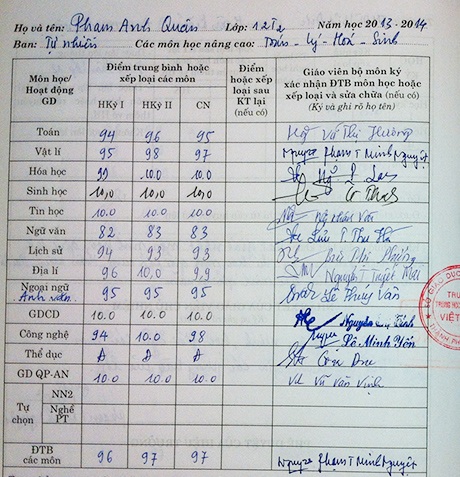 Họ và tên: Phạm Anh Quân Lớp: 12T2 Năm học 2013 - 2014
Ban: Tự nhiên Các môn học nâng cao: Toán - Lý - Hoá - Sinh
Môn học/ Hoạt động GD Điểm trung bình hoặc xếp loại các môn Điểm hoặc xếp loại sau KT lại (nếu có) Giáo viên bộ môn ký xác nhận ĐTB môn học hoặc xếp loại và sửa chữa (nếu có) (Ký và ghi rõ họ tên)
HKỳ I HKỳ II CN
Toán 94 96 95 Võ Thị Hường
Vật lí 95 98 97 Phạm T Minh Nguyệt
Hóa học 99 10.0 10.0
Sinh học 10,0 10,0 10,0
Tin học 10.0 10.0 10.0
Ngữ văn 82 83 83 Lưu T. Thu Hà
Lịch sử 94 93 93 Phương
Địa lí 96 10.0 9,9 Nguyễn T Tuyết Mai
Ngoại ngữ 95 95 95 Lê Thúy Vân
Anh văn
GDCD 10.0 10.0 10.0 Nguyễn
Công nghệ 94 10.0 98 Lê Minh Yến
Thể dục Đ Đ Đ
GD QP-AN 10.0 10.0 10.0 Vũ Văn Vịnh
Tự chọn NN2
Nghề PT
ĐTB các môn 96 97 97 Phạm T Minh Nguyệt
SỞ GIÁO DỤC
TRƯ
TRUNG HỌC
VIỆT
THÀNH PH